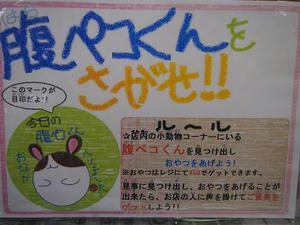 腹ペコくんを
さがせ!!
このマークが
目印だよ!
今日の
腹ペコくん
おなか
すいたよ
ルール
☆店内の小動物コーナーにいる
腹ペコくんを見つけ出し
おやつをあげよう!
※おやつはレジにて¥50でゲットできます。
見事に見つけ出し、おやつをあげることが
出来たら、お店の人に声を掛けてご褒美を
ゲットしよう!!